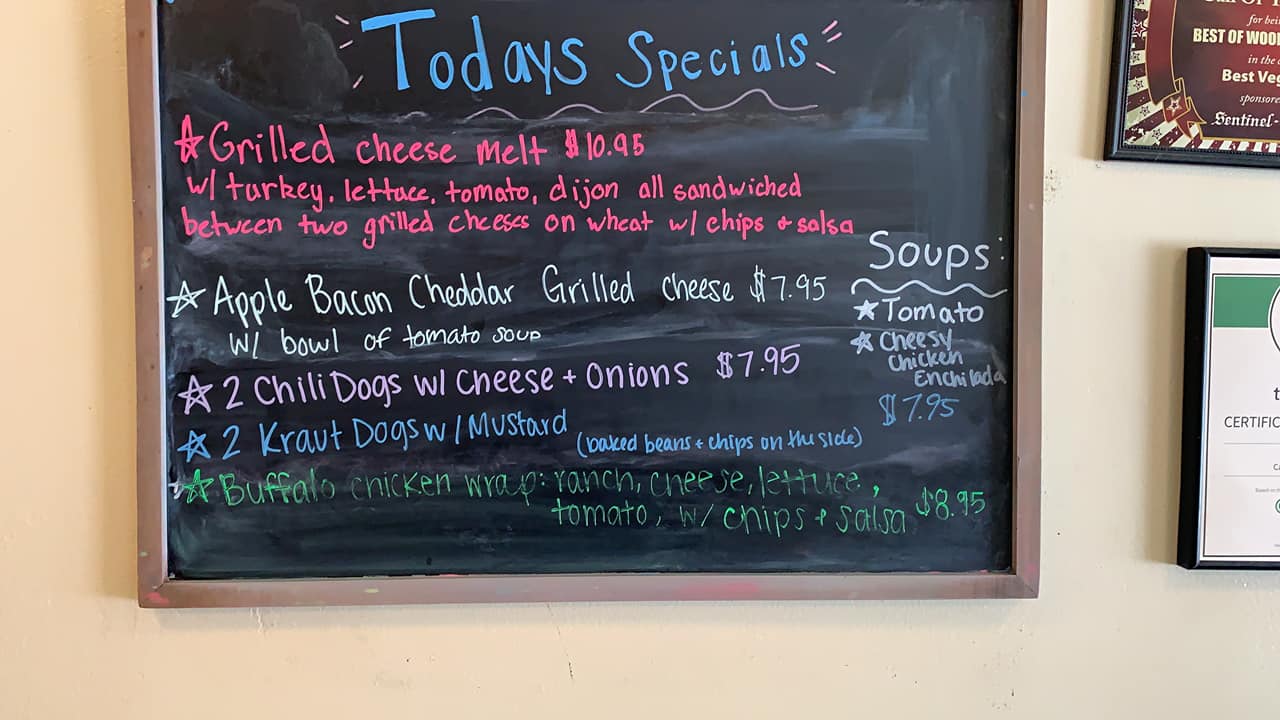 Todays Specials
☆Grilled cheese melt $10.95
w/ turkey, lettuce, tomato, dijon all sandwiched
between two grilled cheeses on wheat w/ chips + salsa
☆Apple Bacon Cheddar Grilled cheese $7.95
w/ bowl of tomato soup
☆2 Chili Dogs w/ Cheese + Onions $7.95
☆2 Kraut Dogs w/ Mustard (baked beans + chips on the side)
☆Buffalo chicken wrap: ranch, cheese, lettuce,
tomato, w/ chips + salsa $8.95
Soups:
★Tomato
☆Cheesy
Chicken
Enchilada
$7.95
for
BEST OF
in the
Best
Sentinel-
CERTIFIC